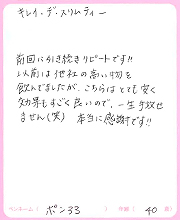 キレイ・デ・スリムティー
前回に引き続きリピートです!!
以前は他社の高い物を
飲んでましたが、こちらはとても安く
効果もすごく良いので、一生手放せ
ません(笑) 本当に感謝です!!
ペンネーム( ポン33 ) 年齢( 40 歳)